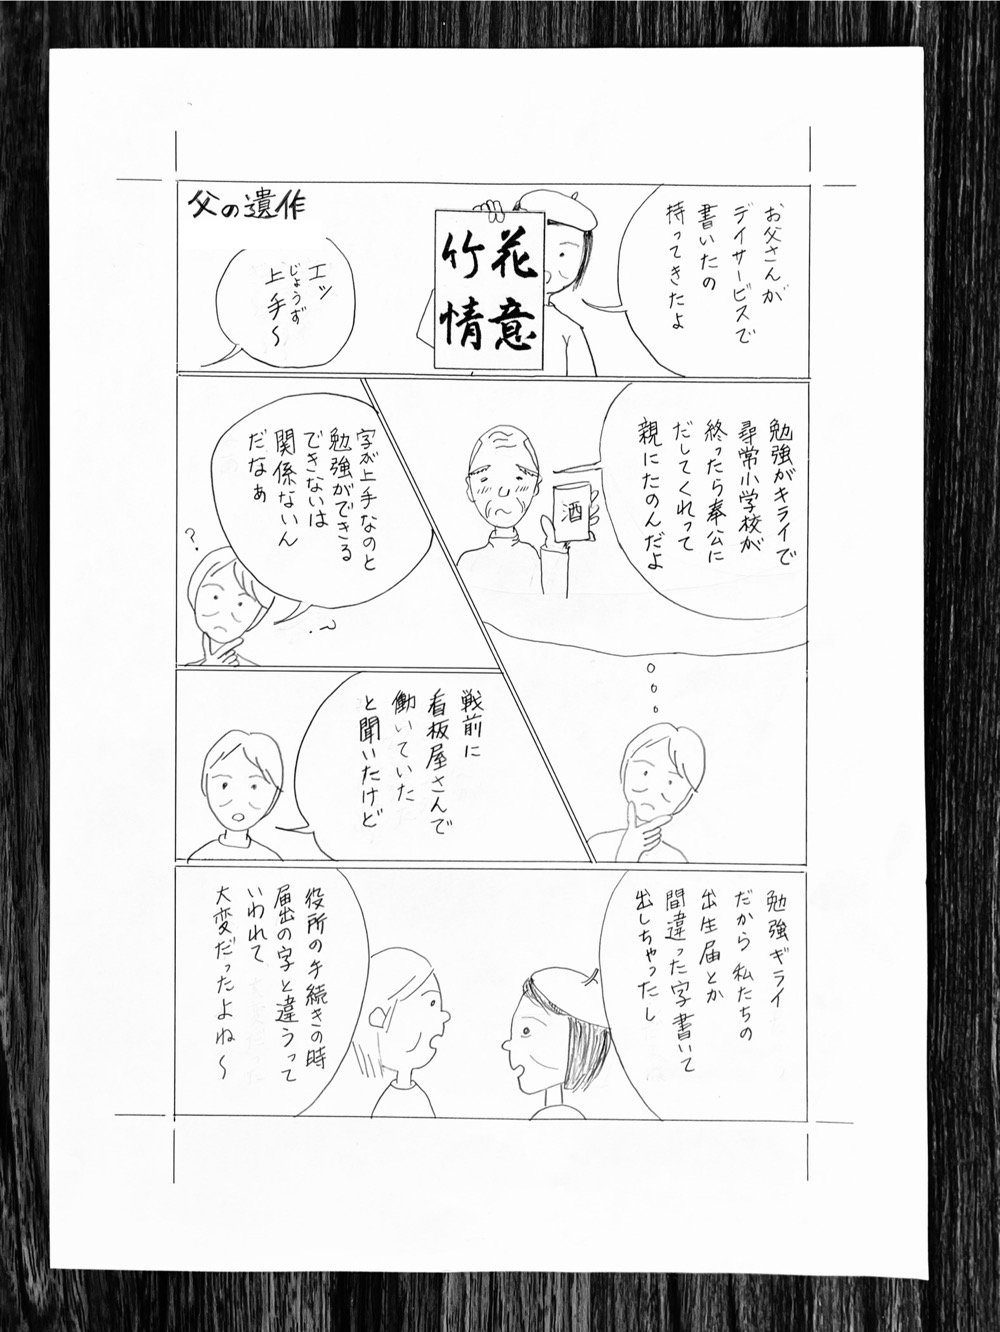 父の遺作
お父さんが
デイサービスで
書いたの
持ってきたよ
花意
竹情
エッ
じょうず
上手～
勉強がキライで
尋常小学校が
終ったら奉公に
だしてくれって
親にたのんだよ
酒
字が上手なのと
勉強ができる
できないは
関係ないん
だなぁ
?
戦前に
看板屋さんで
働いていた
と聞いたけど
勉強ギライ
だから私たちの
出生届とか
間違った字書いて
出しちゃったし
役所の手続きの時
届出の字と違うって
いわれて
大変だったよね～